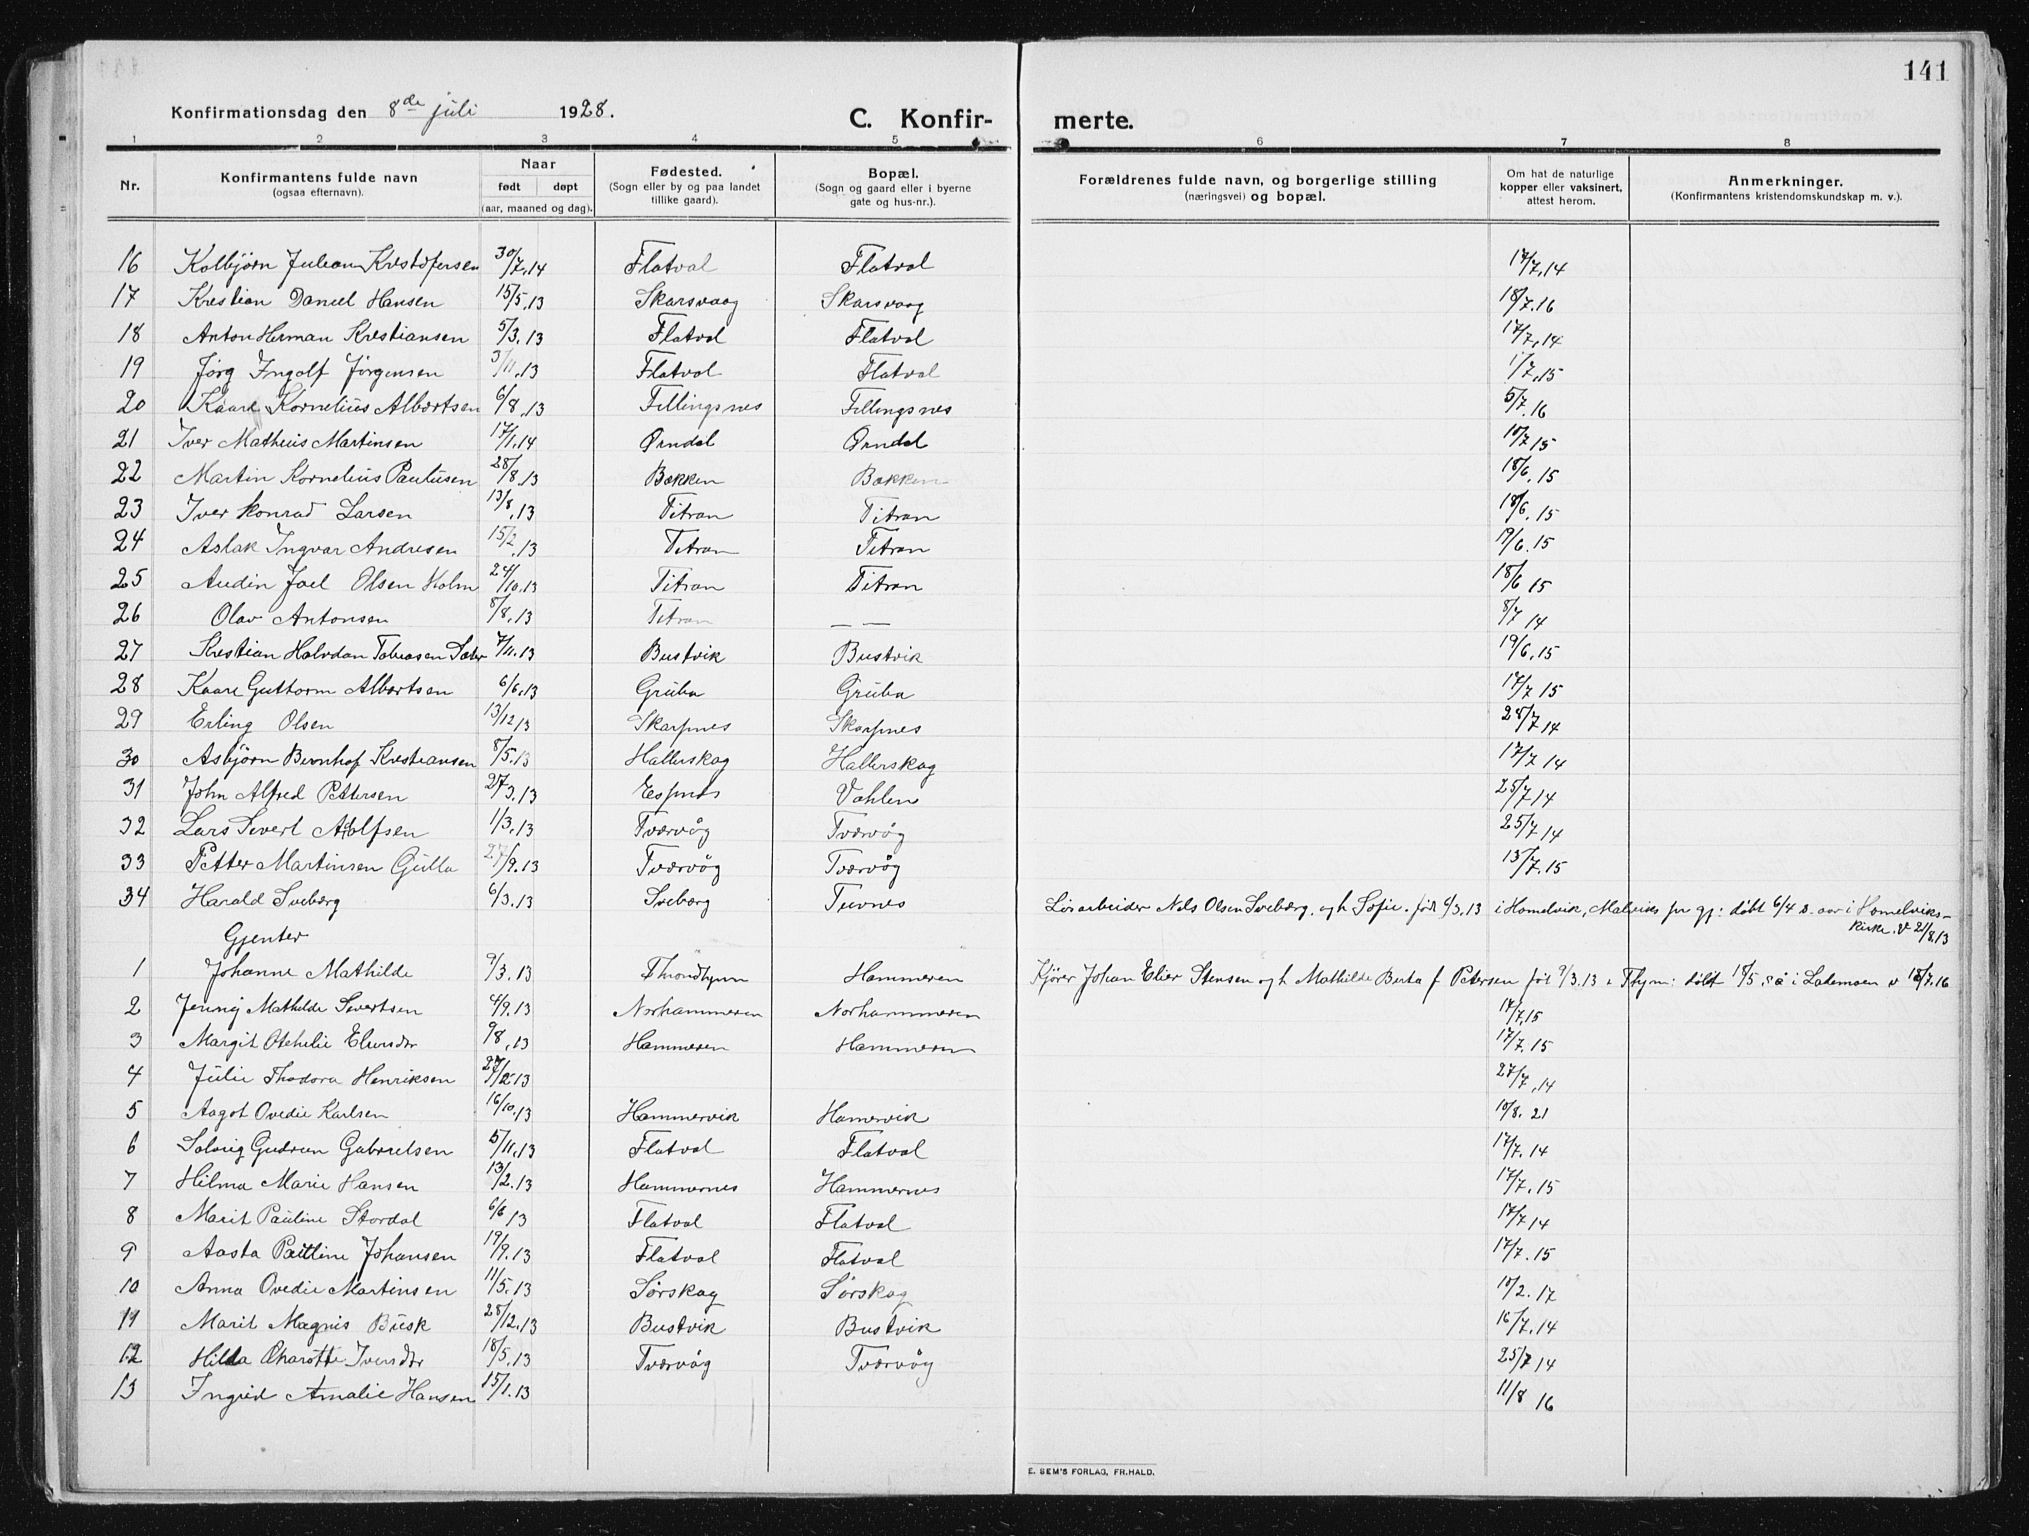 141
Konfirmationsdag den 8de juli 1928.
C. Konfir- merte.
1 2 3 4 5 6 7 8
Nr.
Konfirmantens fulde navn
(ogsaa efternavn).
Naar
født døpt
(aar, maaned og dag).
Fødested.
(Sogn eller by og paa landet
tillike gaard).
Bopæl.
(Sogn og gaard eller i byerne
gate og hus-nr.).
Forældrenes fulde navn, og borgerlige stilling
(næringsvei) og bopæl.
Om hat de naturlige
kopper eller vaksinert,
attest herom.
Anmerkninger.
(Konfirmantens kristendomskundskap m. v.).
16 Kolbjørn Julian Kristofersen 30/7.14 Flatval Flatval 17/7.14
17 Kristian Daniel Hansen 15/5.13 Skarsvaag Skarsvaag 18/7.16
18 Anton Herman Kristiansen 5/3.13 Flatval Flatval 17/7.14
19 Jørg Ingolf Jørgensen 3/11.13 Flatval Flatval 1/7.15
20 Kaare Kornelius Albertsen 6/8.13 Fillingsnes Fillingsnes 5/7.16
21 Iver Matheus Martinsen 17/1.14 Ørndal Ørndal 10/7 15
22 Martin Kornelius Paulusen 28/8.13 Bakken Bakken 18/6.15
23 Iver Konrad Larsen 13/8.13 Titran Titran 18/6.15
24 Aslak Ingvar Andresen 15/2.13 Titran Titran 19/6.15
25 Audin Joel Olsen Holm 24/10.13 Titran Titran 18/6 15
26 Olav Antonsen 8/8.13 Titran — — 8/7 14
27 Kristian Halvdan Tobiasen Sæter 7/11.13 Bustvik Bustvik 19/6.15
28 Kaare Guttorm Albertsen 6/6.13 Gruba Gruba 17/7 15
29 Erling Olsen 13/12 13 Skarpnes Skarpnes 28/7 14
30 Asbjørn Bernhof Kristiansen 8/5.13 Hallerskag Hallerskag 17/7 14
31 John Alfred Pettersen 27/3.13 Espnes Vahlen 25/7 14
32 Lars Sivert Adolfsen 1/3.13 Tværvåg Tværvåg 25/7 14
33 Petter Martinsen Gulla 27/9.13 Tværvåg Tværvåg 13/7.15
34 Harald Sveberg 6/3.13 Sveberg Tuvnes Løsarbeider Nils Olsen Sveberg. og h Sofie. født 6/3.13 i Homelvik, Malviks pr gj: døbt 6/4 s. aar i Homelviks-
kirke. V 21/8.13
Gjenter
1 Johanne Mathilde 9/3.13 Throndhjem Hammeren Kjører Johan Elier Stensen og h Mathilde Berta f Petersen født 9/3.13 i Thjm: døbt 18/5 s å i Lademoen v 18/7.16
2 Jenny Mathilde Sivertsen 4/9.13 Norhammeren Norhammeren 17/7.15
3 Margit Othelie Elinsdtr 9/8.13 Hammeren Hammeren 17/7.15
4 Julie Thodora Henriksen 27/12 13 27/7.14
5 Aagot Ovedie Karlsen 16/10.13 Hammervik Hamervik 10/8.21
6 Solveig Gudrun Gabrielsen 5/11.13 Flatval Flatval 17/7.14
7 Hilma Marie Hansen 13/2.13 Hammernes Hammernes 17/7.15
8 Marit Pauline Stordal 6/6 13 Flatval Flatval 17/7 14
9 Aasta Pauline Johansen 19/9.13 Flatval Flatval 17/7.15
10 Anna Ovedie Martinsen 11/5.13 Sørskag Sørskag 10/2.17
11 Marit Magnis Busk 28/12.13 Bustvik Bustvik 16/7.14
12 Hilda Charotte Iversdtr 18/5.13 Tværvåg Tværvåg 25/7 14
13 Ingrid Amalie Hansen 15/1.13 11/8 16
E. SEM'S FORLAG, FR.HALD.